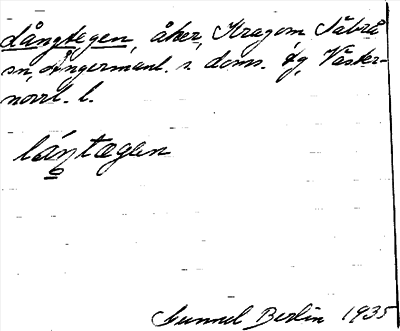 Långtegen, åker, Kragom Säbrå
sn, Ångermanl. s. doms. dg, Väster-
norrl. l.
láŋtægen
Gunnel Berlin 1935